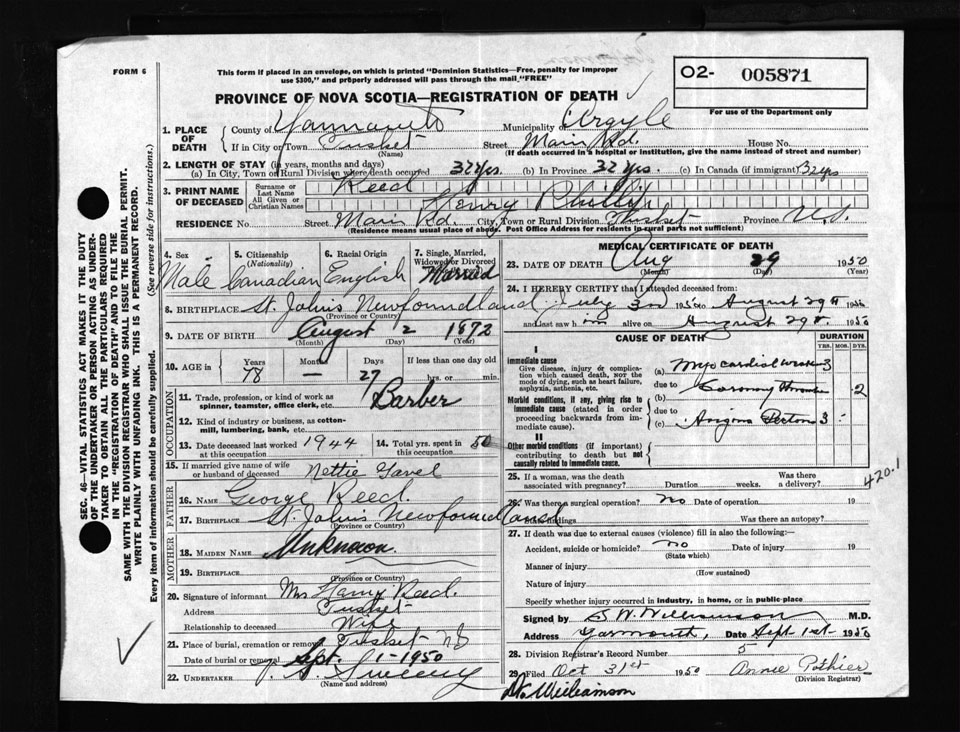 FORM 6
This form if placed in an envelope, on which is printed "Dominion Statistics—Free, penalty for improper
use $300," and properly addressed will pass through the mail "FREE"
O2- 005871
For use of the Department only
PROVINCE OF NOVA SCOTIA—REGISTRATION OF DEATH
1. PLACE OF DEATH
County of Yarmouth Municipality of Argyle
If in City or Town Tusket Street Main Rd. House No.
(Name) (If death occurred in a hospital or institution, give the name instead of street and number)
2. LENGTH OF STAY (in years, months and days)
(a) In City, Town or Rural Division where death occurred 32 yrs. (b) In Province 32 yrs. (c) In Canada (if immigrant) 32 yrs
3. PRINT NAME OF DECEASED
Surname or Last Name Reed
All Given or Christian Names Henry Phillip
RESIDENCE No. Street Main Rd. City, Town or Rural Division Tusket Province N.S.
(Residence means usual place of abode. Post Office Address for residents in rural parts not sufficient)
4. Sex Male
5. Citizenship (Nationality) Canadian
6. Racial Origin English
7. Single, Married, Widowed or Divorced Married
8. BIRTHPLACE St. Johns Newfoundland
(Province or Country)
9. DATE OF BIRTH August 2 1872
(Month) (Day) (Year)
10. AGE in Years 78 Months — Days 27 If less than one day old
hrs. or min.
OCCUPATION
11. Trade, profession, or kind of work as spinner, teamster, office clerk, etc. Barber
12. Kind of industry or business, as cotton-mill, lumbering, bank, etc.
13. Date deceased last worked at this occupation 1944
14. Total yrs. spent in this occupation 50
15. If married give name of wife or husband of deceased Nettie
FATHER
16. NAME George Reed.
17. BIRTHPLACE St. Johns Newfoundland
(Province or Country)
MOTHER
18. MAIDEN NAME Unknown
19. BIRTHPLACE
(Province or Country)
20. Signature of informant Mrs Reed.
Address Tusket
Relationship to deceased Wife
21. Place of burial, cremation or removal Tusket NS
Date of burial or removal Sept. 1 - 1950
22. UNDERTAKER Sweeny
(Name and address)
MEDICAL CERTIFICATE OF DEATH
23. DATE OF DEATH Aug 29 1950
(Month) (Day) (Year)
24. I HEREBY CERTIFY that I attended deceased from:
July 3rd 1950 to August 29th 1950
and last saw him alive on August 29th 1950
CAUSE OF DEATH
DURATION
YRS. MOS. DYS.
I
Immediate cause
Give disease, injury or complication which caused death, not the mode of dying, such as heart failure, asphyxia, asthenia, etc.
(a) 3
due to
(b) 2
Morbid conditions, if any, giving rise to immediate cause (stated in order proceeding backwards from immediate cause).
due to
(c) 3
II
Other morbid conditions (if important) contributing to death but not causally related to immediate cause.
420.1
25. If a woman, was the death associated with pregnancy? Duration weeks. Was there a delivery?
26. Was there surgical operation? no Date of operation 19
State findings Was there an autopsy?
27. If death was due to external causes (violence) fill in also the following:—
Accident, suicide or homicide? no Date of injury 19
(State which)
Manner of injury
(How sustained)
Nature of injury
Specify whether injury occurred in industry, in home, or in public place
Signed by S W Williamson M.D.
Address Yarmouth, Date Sept 1st 1950
28. Division Registrar's Record Number 5
29. Filed Oct 31st 1950 Annie Pothier
(Division Registrar)
Dr. Williamson
SEC. 46—VITAL STATISTICS ACT MAKES IT THE DUTY
OF THE UNDERTAKER OR PERSON ACTING AS UNDER-
TAKER TO OBTAIN ALL THE PARTICULARS REQUIRED
IN THE "REGISTRATION OF DEATH" AND TO FILE THE
SAME WITH THE DIVISION REGISTRAR WHO SHALL ISSUE THE BURIAL PERMIT.
WRITE PLAINLY WITH UNFADING INK. THIS IS A PERMANENT RECORD.
Every item of information should be carefully supplied. (See reverse side for instructions.)